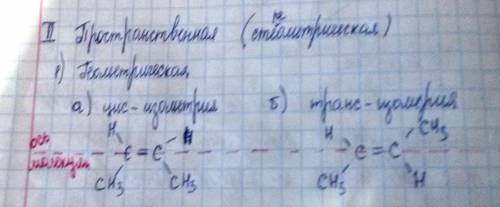 II Пространственная (стеreометрическая)
1) Геометрическая
а) цис-изометрия б) транс-изомерия
H H H CH₃
ось молекулы C=C C=C
CH₃ CH₃ CH₃ H